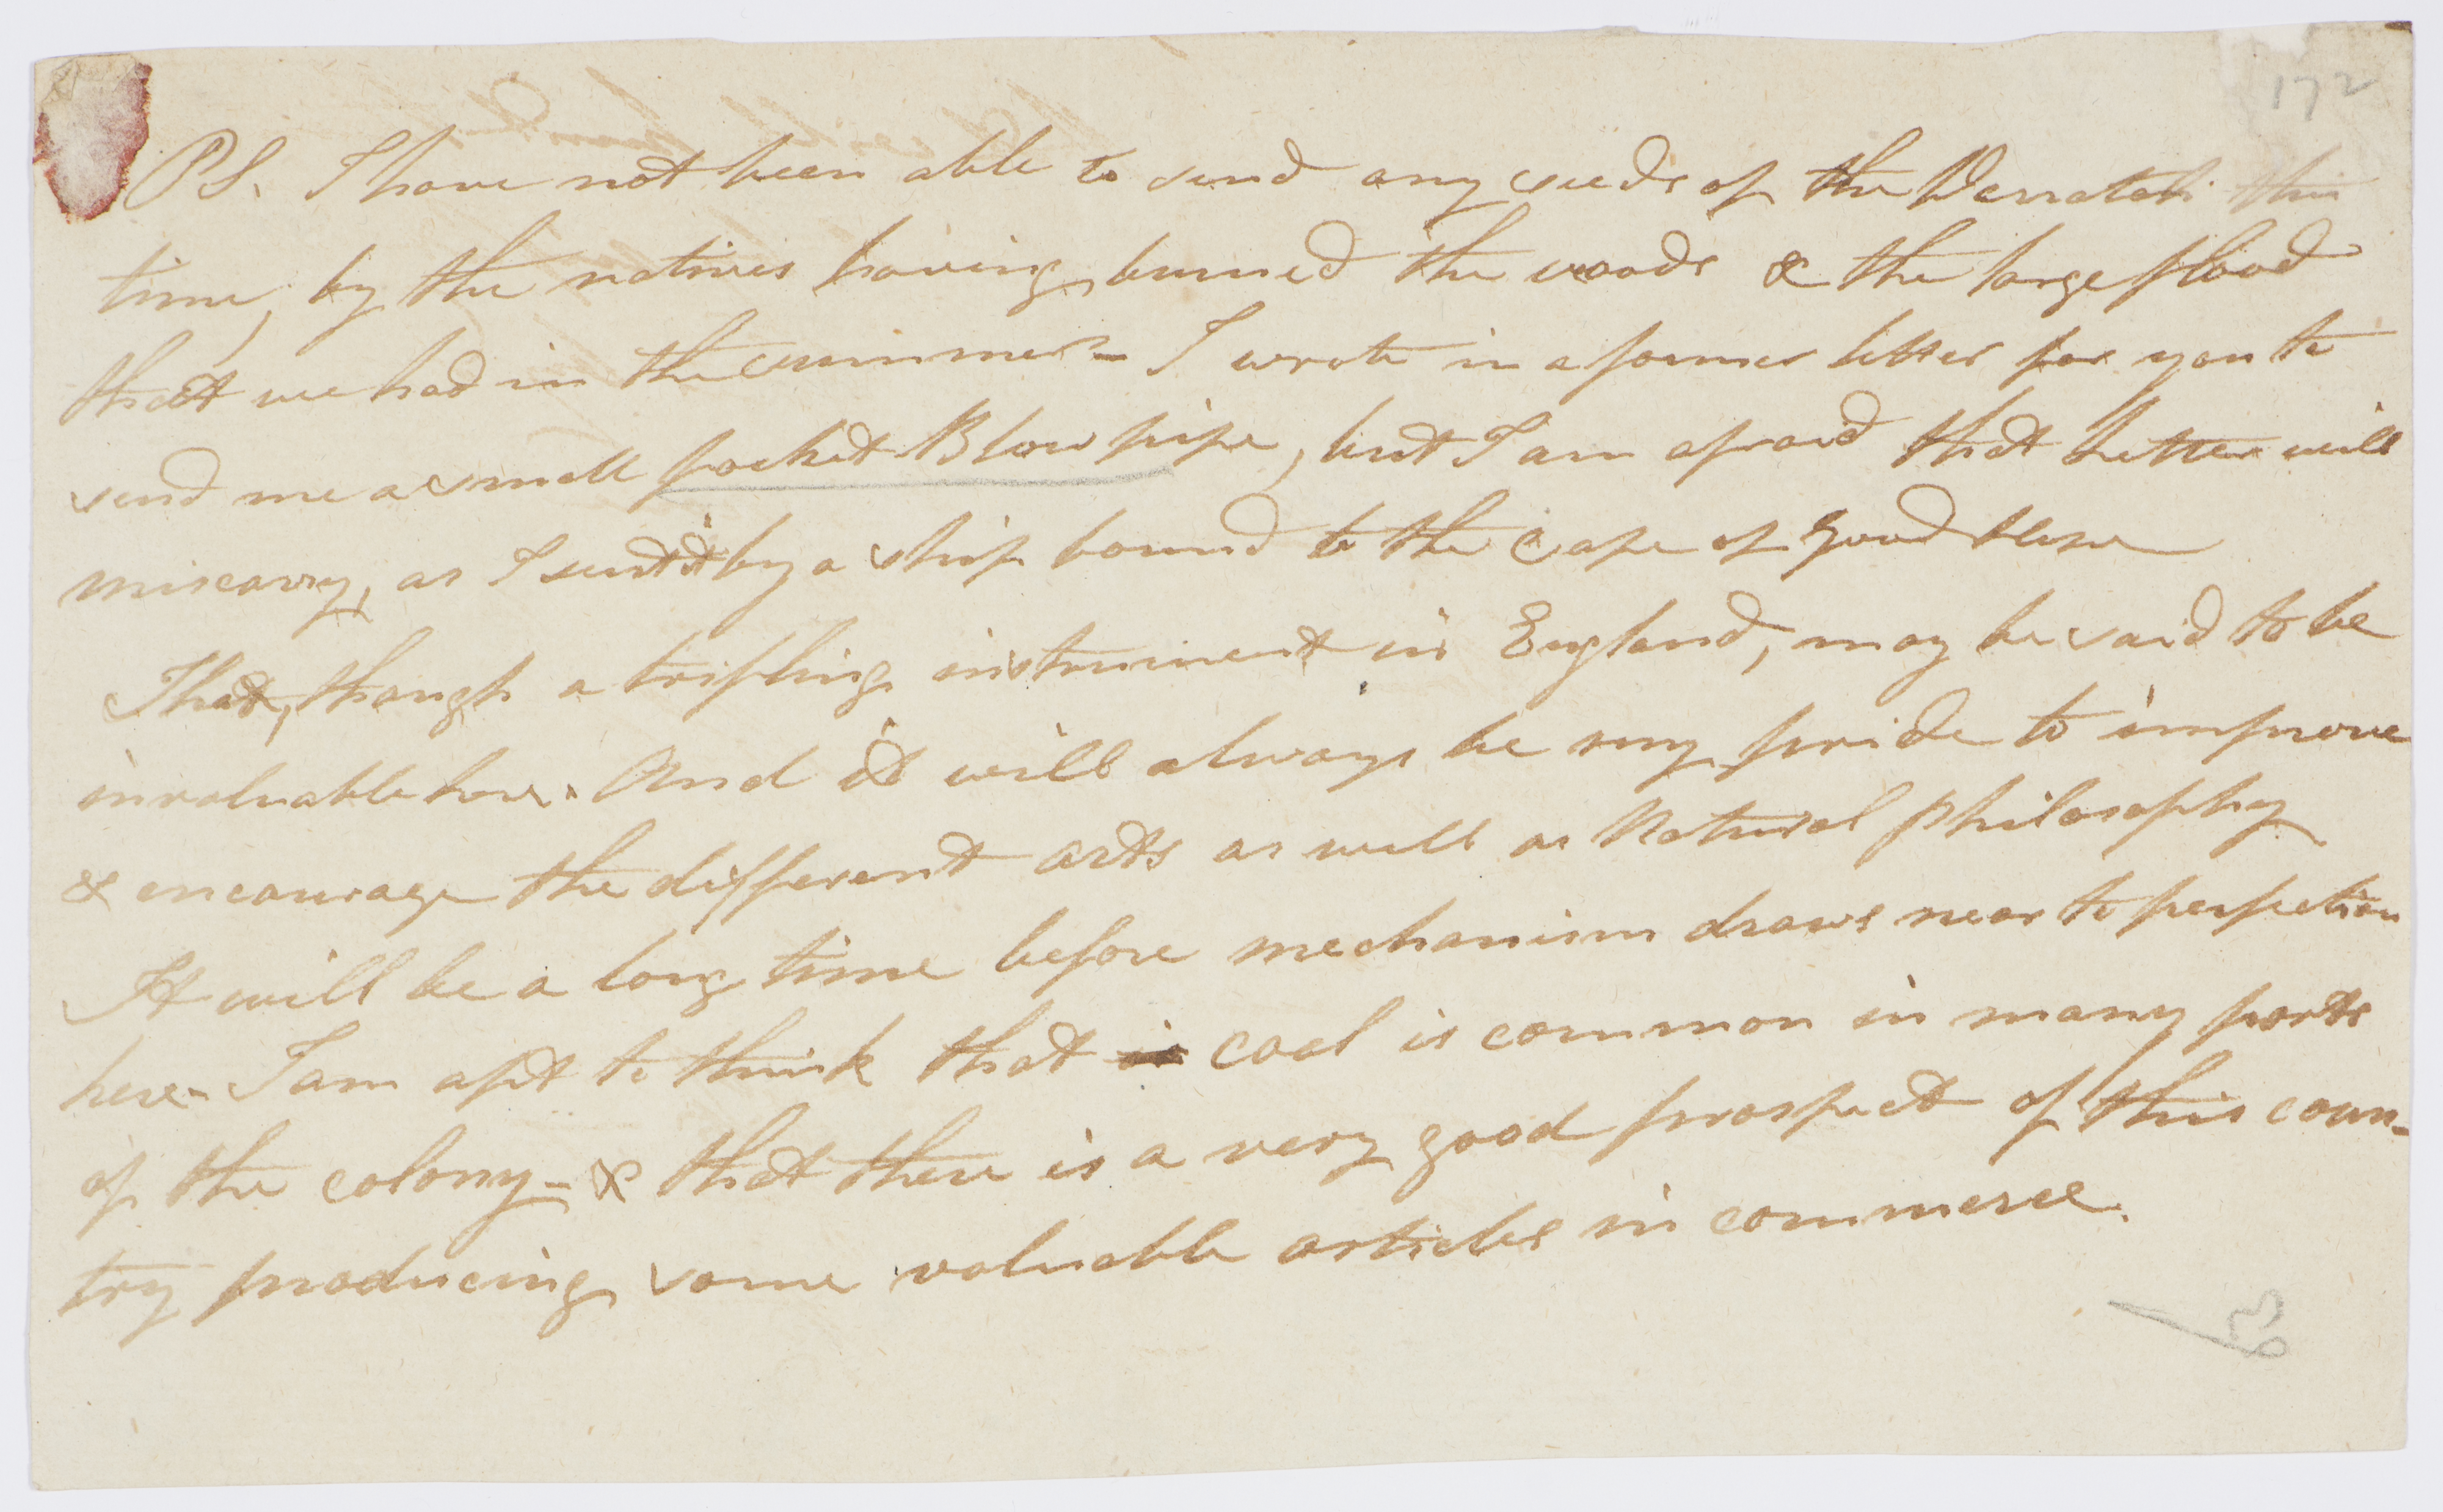 172
PS. I have not been able to send any seeds of the Warratah this
time, by the natives having burned the woods & the large flood
that we had in the summer - I wrote in a former letter for you to
send me a small pocket Blow pipe, but I am afraid that letter will
miscarry, as I sent it by a ship bound to the Cape of Good Hope
That, though a trifling instrument in England, may be said to be
invaluable here. And it will always be my pride to improve
& encourage the different arts as well as Natural philosophy
It will be a long time before mechanism draws near to perfection
here - I am apt to think that coal is common in many parts
of the colony - & that there is a very good prospect of this coun-
try producing some valuable articles in commerce.